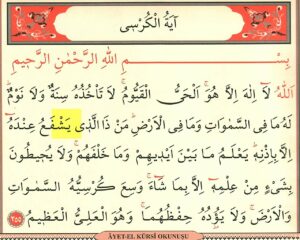 آيَةُ الْكُرْسِى
بِسْمِ اللهِ الرَّحْمٰنِ الرَّحِيمِ
اَللهُ لَآ اِلٰهَ اِلَّا هُوَ ۚ اَلْحَىُّ الْقَيُّومُ ۚ لَا تَاْخُذُهُ سِنَةٌ وَلَا نَوْمٌ ۚ
لَهُ مَا فِى السَّمٰوَاتِ وَمَا فِى الْاَرْضِ ۚ مَنْ ذَا الَّذِى يَشْفَعُ عِنْدَهُٓ
اِلَّا بِاِذْنِهِ ۚ يَعْلَمُ مَا بَيْنَ اَيْدِيهِمْ وَمَا خَلْفَهُمْ ۚ وَلَا يُحِيطُونَ
بِشَىْءٍ مِنْ عِلْمِهِٓ اِلَّا بِمَا شَآءَ ۚ وَسِعَ كُرْسِيُّهُ السَّمٰوَاتِ
وَالْاَرْضَ ۚ وَلَا يَؤُدُهُ حِفْظُهُمَا ۚ وَهُوَ الْعَلِىُّ الْعَظِيمُ ﴿٢٥٥﴾
ÂYET-EL KÜRSÎ OKUNUŞU